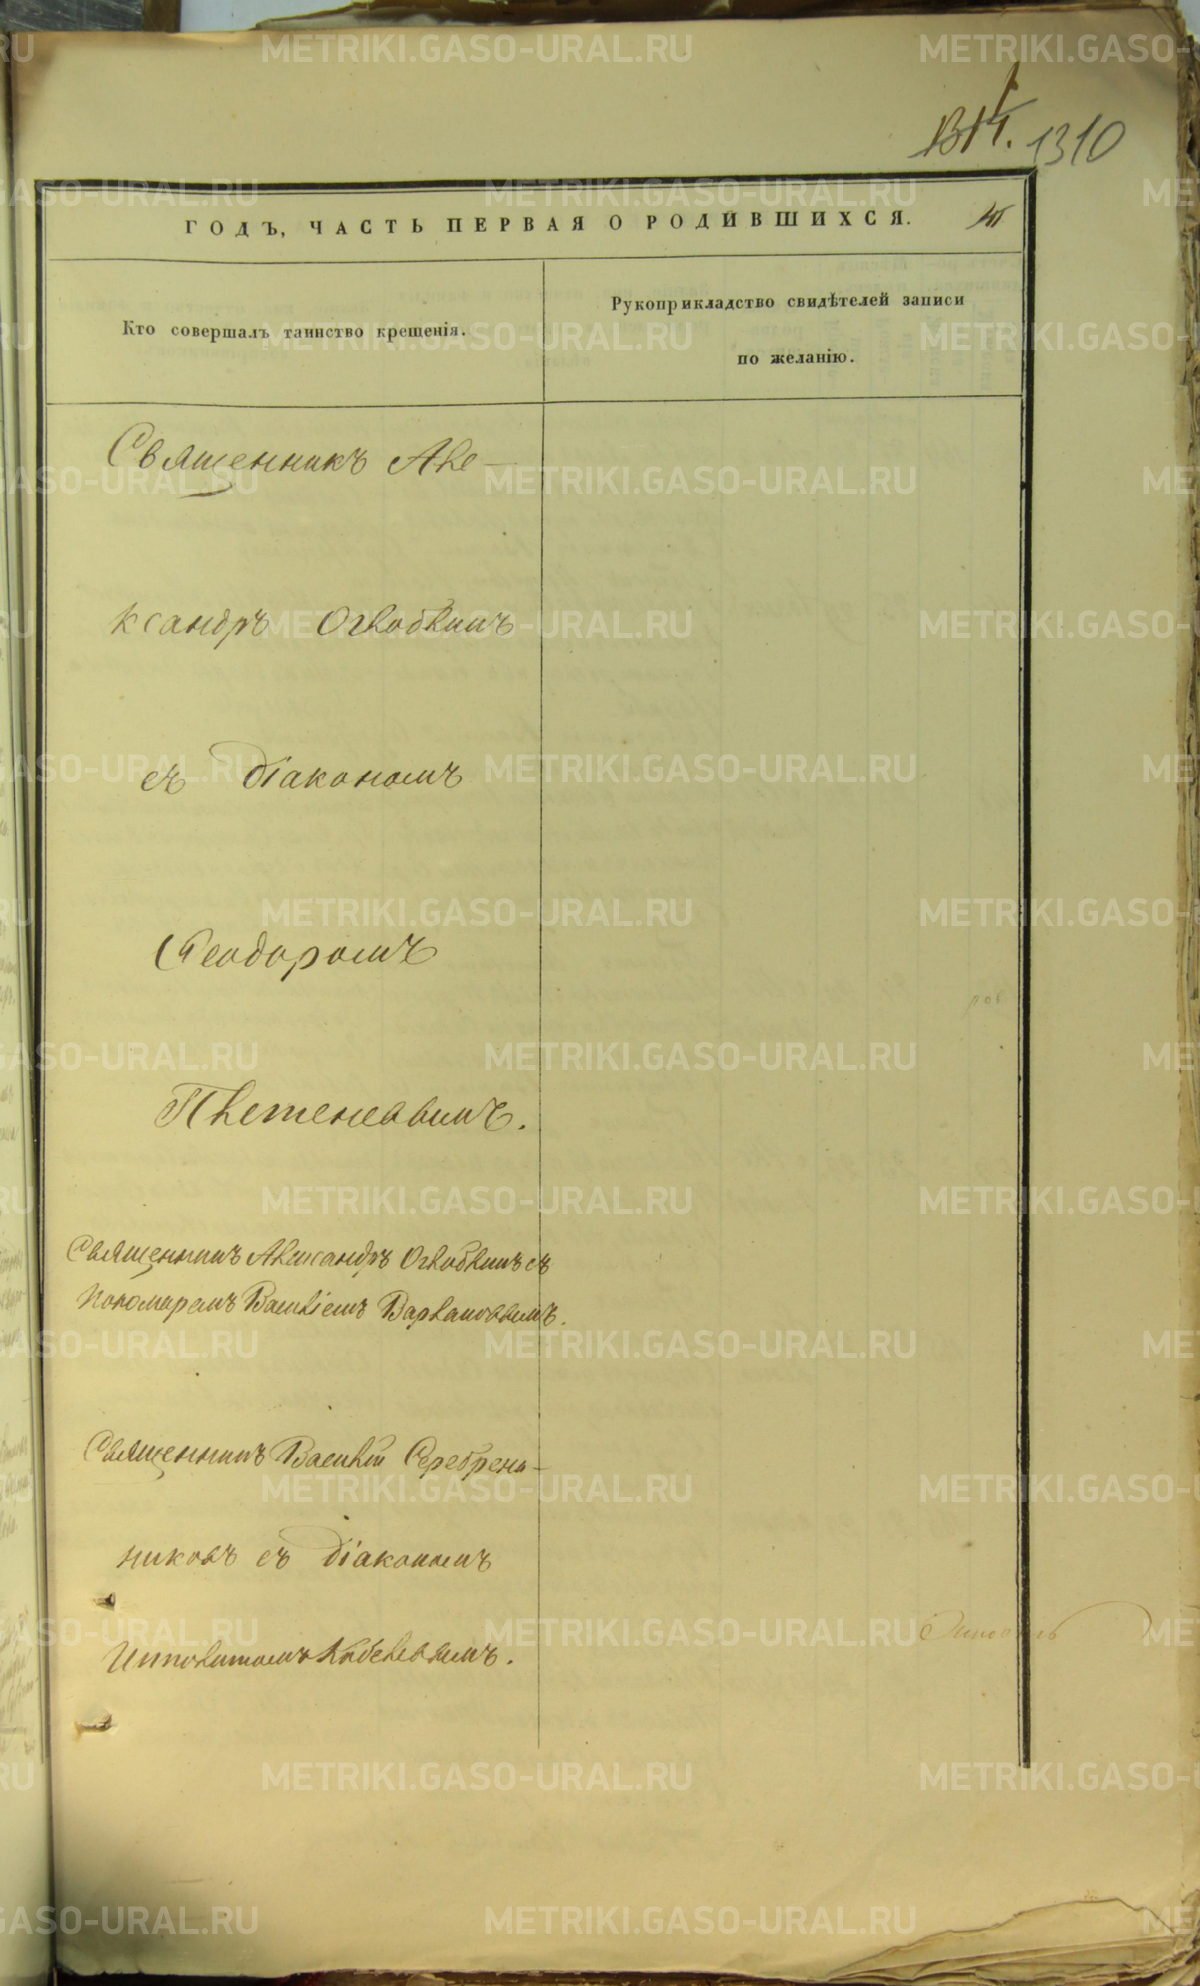 1310
ГОДЪ, ЧАСТЬ ПЕРВАЯ О РОДИВШИХСЯ.
Кто совершалъ таинство крещенія.
Рукоприкладство свидѣтелей записи
по желанію.
Священникъ Але-
ксандръ Оглоблинъ
съ діакономъ
Ѳеодоромъ
Плетеневымъ.
Священникъ Александръ Оглоблинъ съ
пономаремъ Василіемъ Варлаковымъ.
Священникъ Василій Серебрени-
никовъ съ діакономъ
Ипполитомъ Кобелевымъ.
METRIKI.GASO-URAL.RU